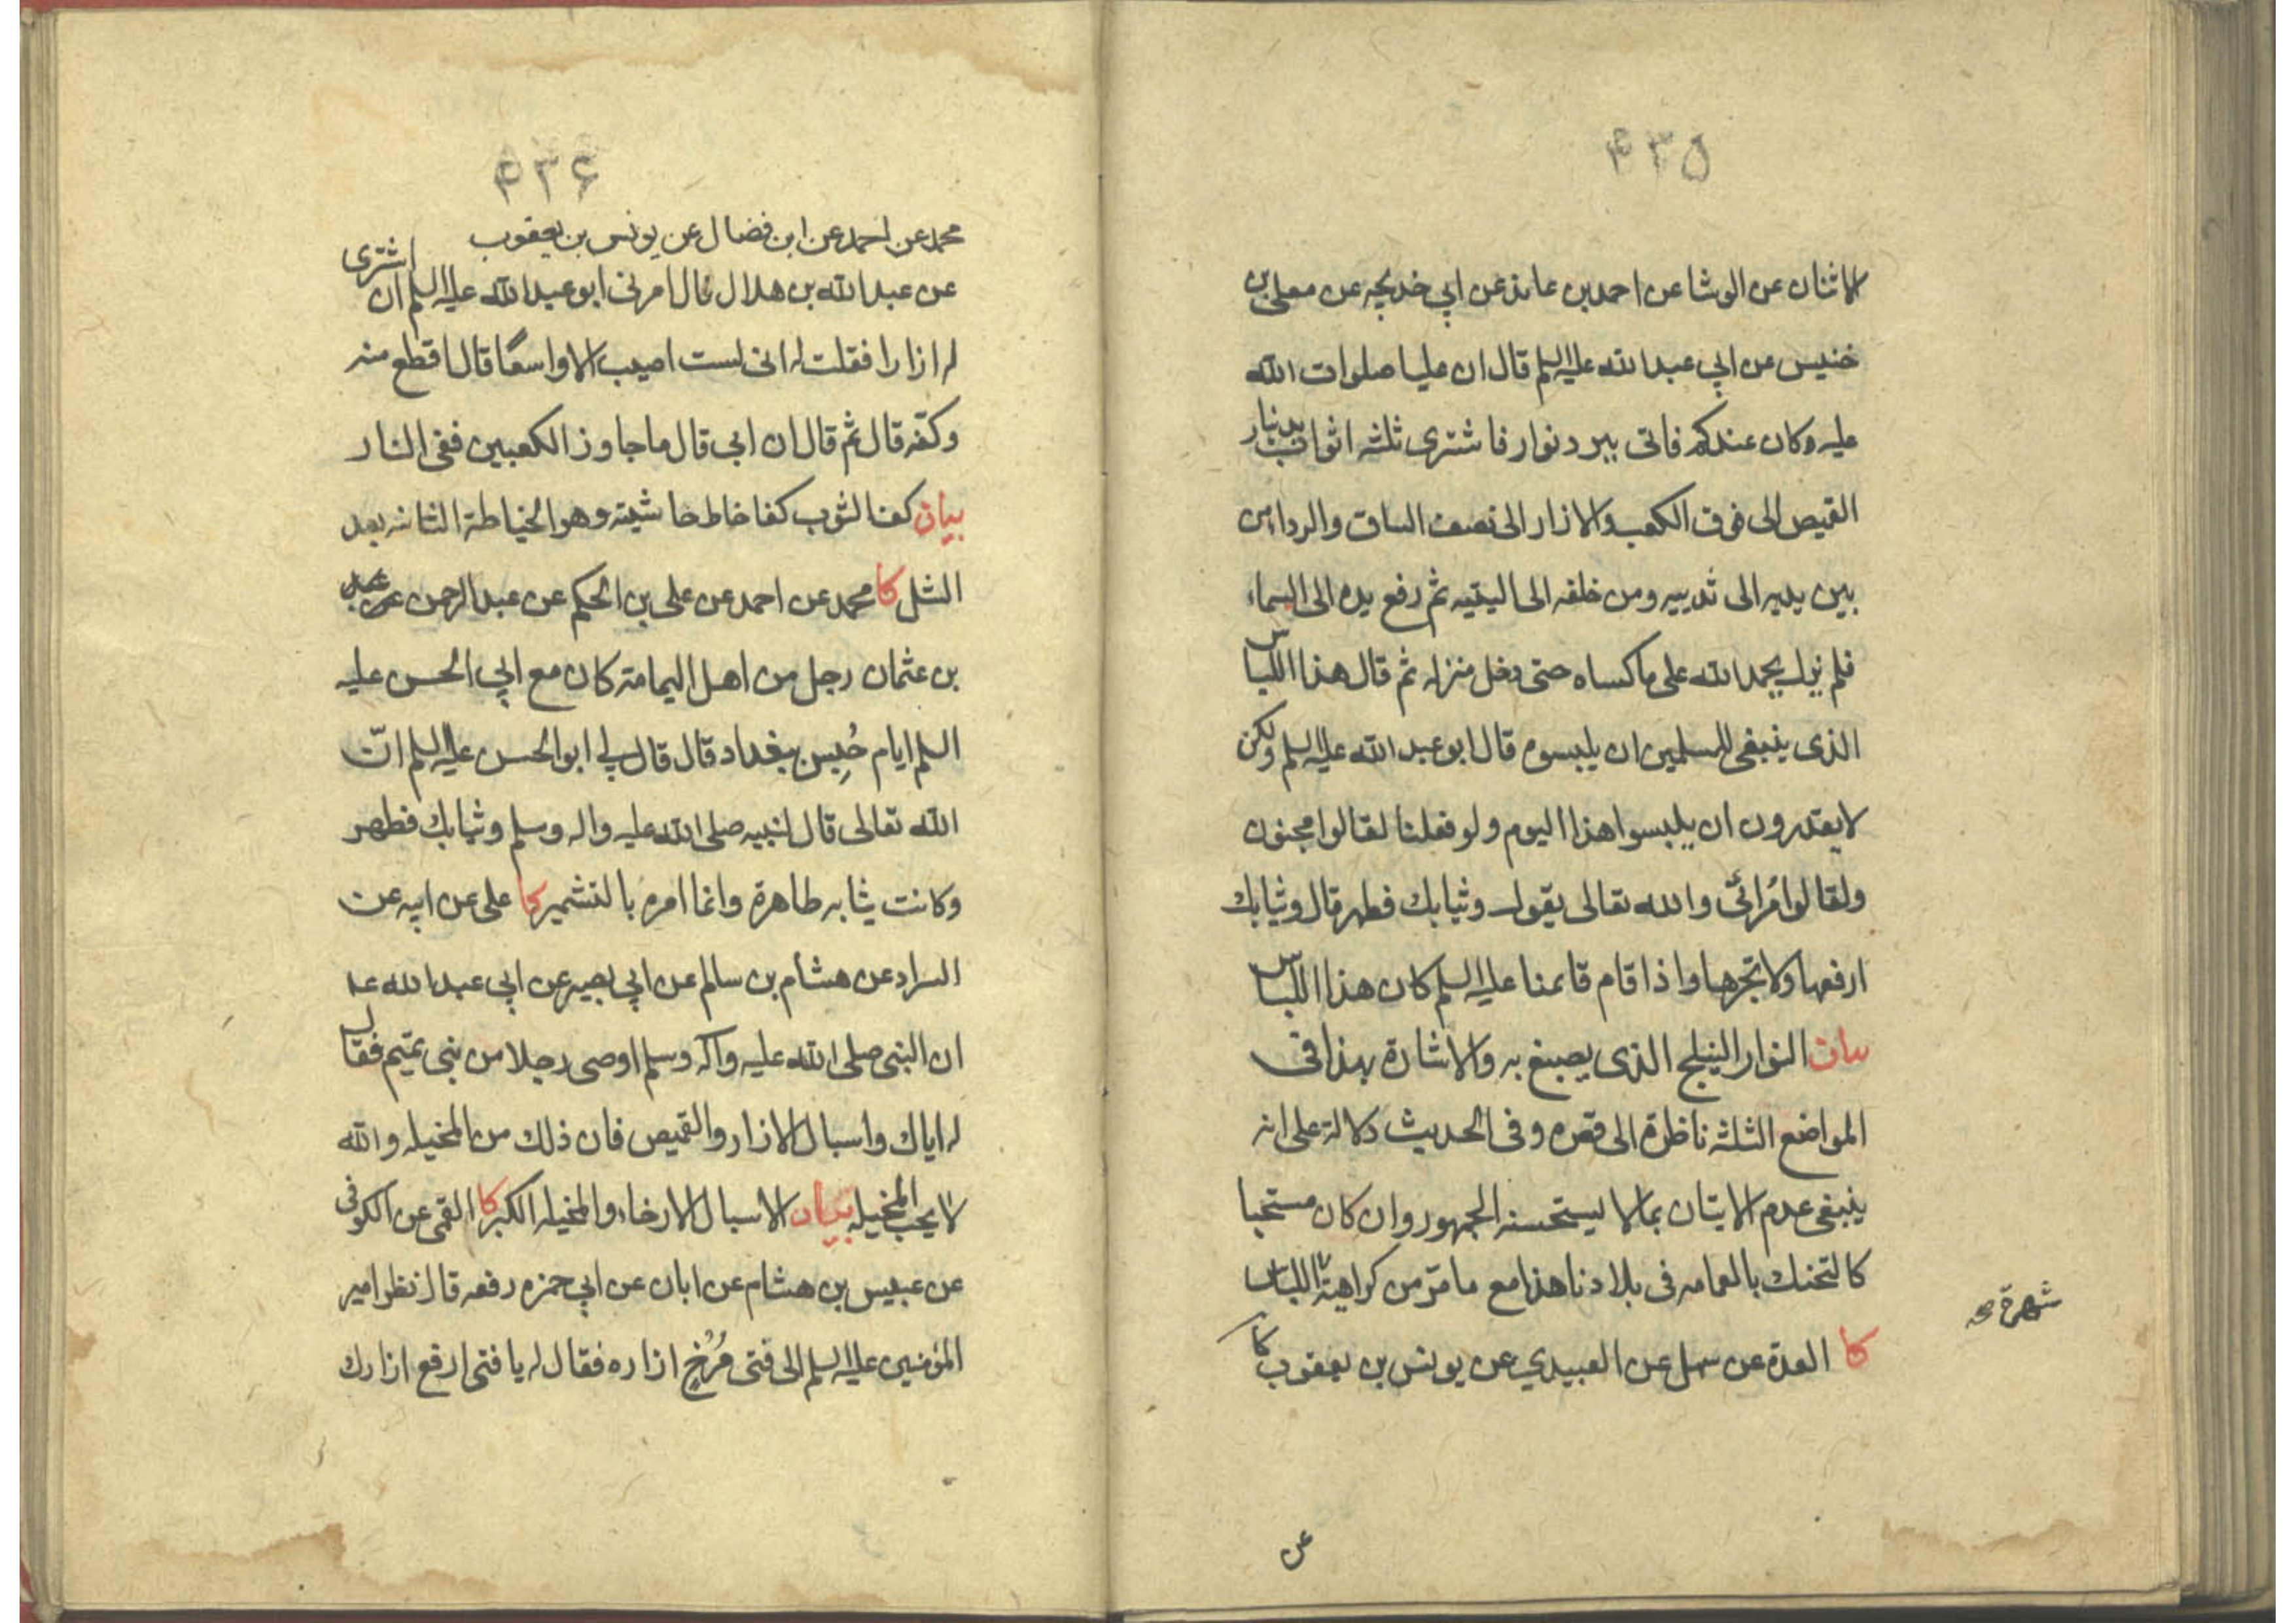 ۴۳۵
الاثنان عن الوشا عن احمد بن عائذ عن ابي خديجه عن معلى بن
خنيس عن ابي عبد الله عليه السلم قال ان عليا صلوات الله
عليه وكان عندكم فاتى ببرد نوار فاشترى ثلثه اثواب بدينار
القميص الى فوق الكعب والازار الى نصف الساق والرداء من
بين يديه الى ثدييه ومن خلفه الى اليتيه ثم رفع يده الى السماء
فلم يزل يحمد الله على ما كساه حتى دخل منزله ثم قال هذا اللباس
الذى ينبغى للمسلمين ان يلبسوه قال ابو عبد الله عليه السلم ولكن
لا يقدرون ان يلبسوا هذا اليوم ولو فعلنا لقالوا مجنون
ولقالوا مُرائى والله تعالى يقول وثيابك فطهر قال وثيابك
ارفعها ولا تجرها واذا قام قائمنا عليه السلم كان هذا اللباس
بيان النوار النيلج الذى يصبغ به والاشارة بهذا فى
المواضع الثلثه ناظرة الى قصره وفى الحديث دلالة على انه
ينبغى عدم الاتيان بما لا يستحسنه الجمهور وان كان مستحبا
كالتحنك بالعمامه فى بلادنا هذا مع ما مرّ من كراهية اللباس
شهرة صح
كا العدة عن سهل عن العبيدي عن يونس بن يعقوب كا
عن
۴۳۶
محمد عن احمد عن ابن فضال عن يونس بن يعقوب
عن عبد الله بن هلال قال امرنى ابو عبد الله عليه السلم ان اشترى
له ازارا فقلت له انى لست اصيب الا واسعًا قال اقطع منه
وكفّه قال ثم قال ان ابى قال ما جاوز الكعبين ففى النار
بيان كف الثوب كفا خاط حاشيته وهو الخياطة الثانيه بعد
الشل كا محمد عن احمد عن على بن الحكم عن عبد الرحمن عن
بن عثمان رجل من اهل اليمامة كان مع ابي الحسن عليه
السلم ايام حُبِس ببغداد قال قال لي ابو الحسن عليه السلم انّ
الله تعالى قال لنبيه صلى الله عليه واله وسلم وثيابك فطهر
وكانت ثيابه طاهرة وانما امره بالتشمير كا على عن ابيه عن
السراد عن هشام بن سالم عن ابي بصير عن ابي عبد الله ع
ان النبى صلى الله عليه وآله وسلم اوصى رجلا من بنى تميم فقال
له اياك واسبال الازار والقميص فان ذلك من المخيله والله
لا يحب المخيله بيان الاسبال الارخاء والمخيله الكبر كا القمى عن الكوفى
عن عبيس بن هشام عن ابان عن ابي حمزه رفعه قال نظر امير
المؤمنين عليه السلم الى فتى مُرْخٍ ازاره فقال له يا فتى ارفع ازارك